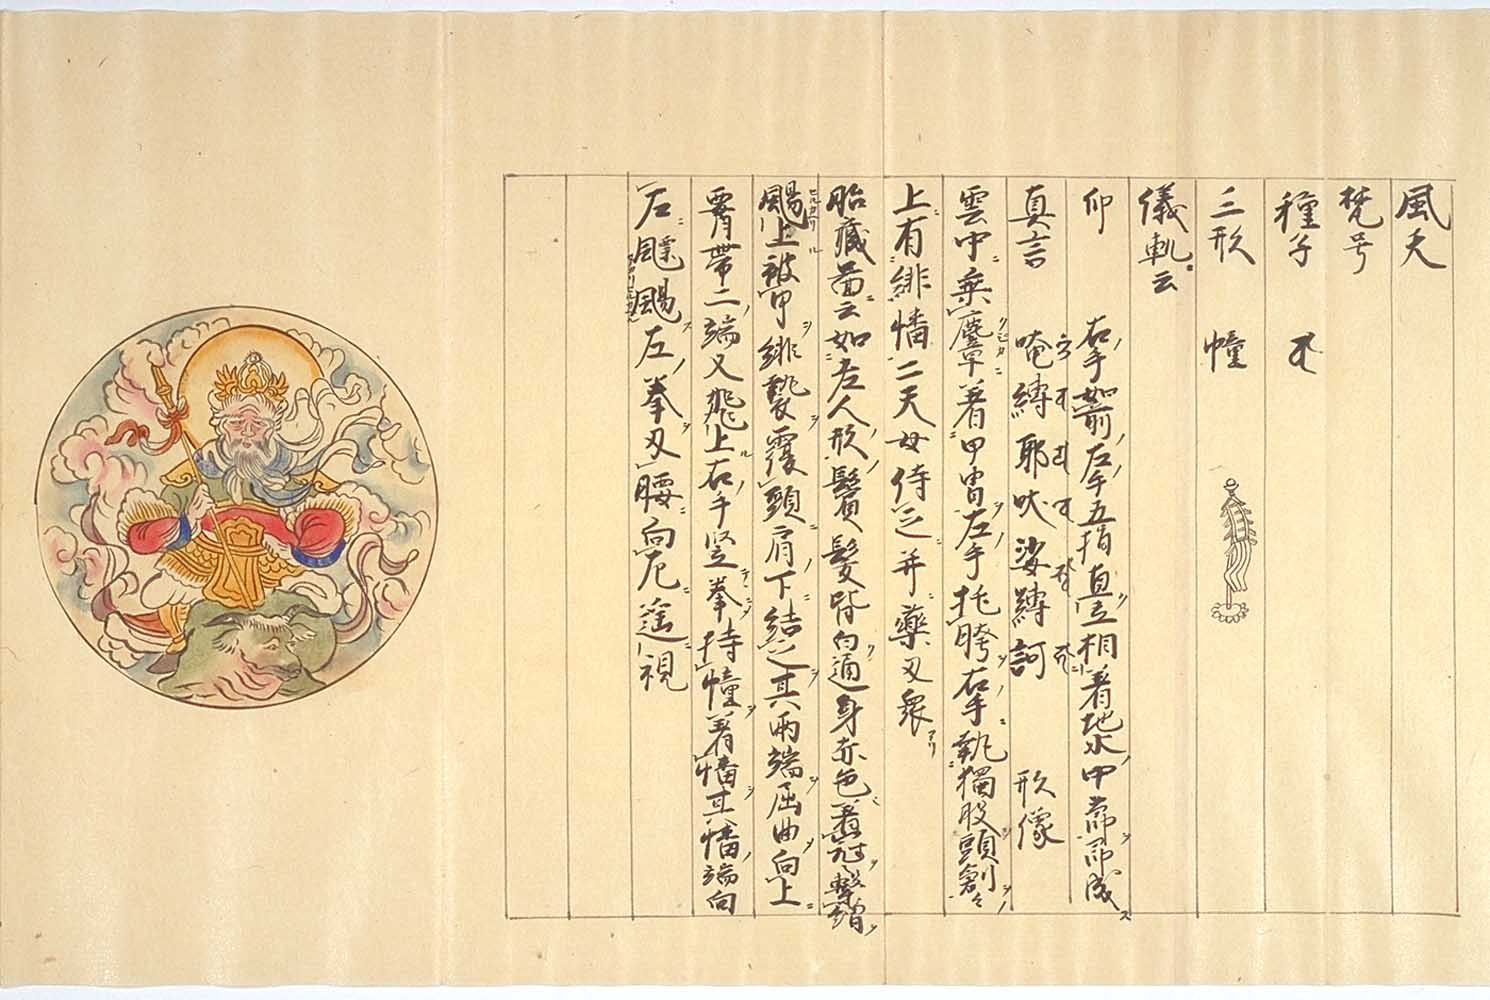 風天
梵号
種子
三形 幢
儀軌云
印 右手如前左手五指直立相著地水中節即成
真言 唵縛耶吠娑縛訶 形像
雲中乗麞著甲冑左手托胯右手執獨股頭創々
上有緋幡二天女侍之并藥叉衆
胎藏啚云如老人形鬢髮皆白通身赤色著冠繋繒
颺上被甲緋褻覆頭肩下結之其兩端屈曲向上
霄帶二端又飛上右手竪拳持幢著幡其幡端向
左飄颺左拳叉腰向左遥視